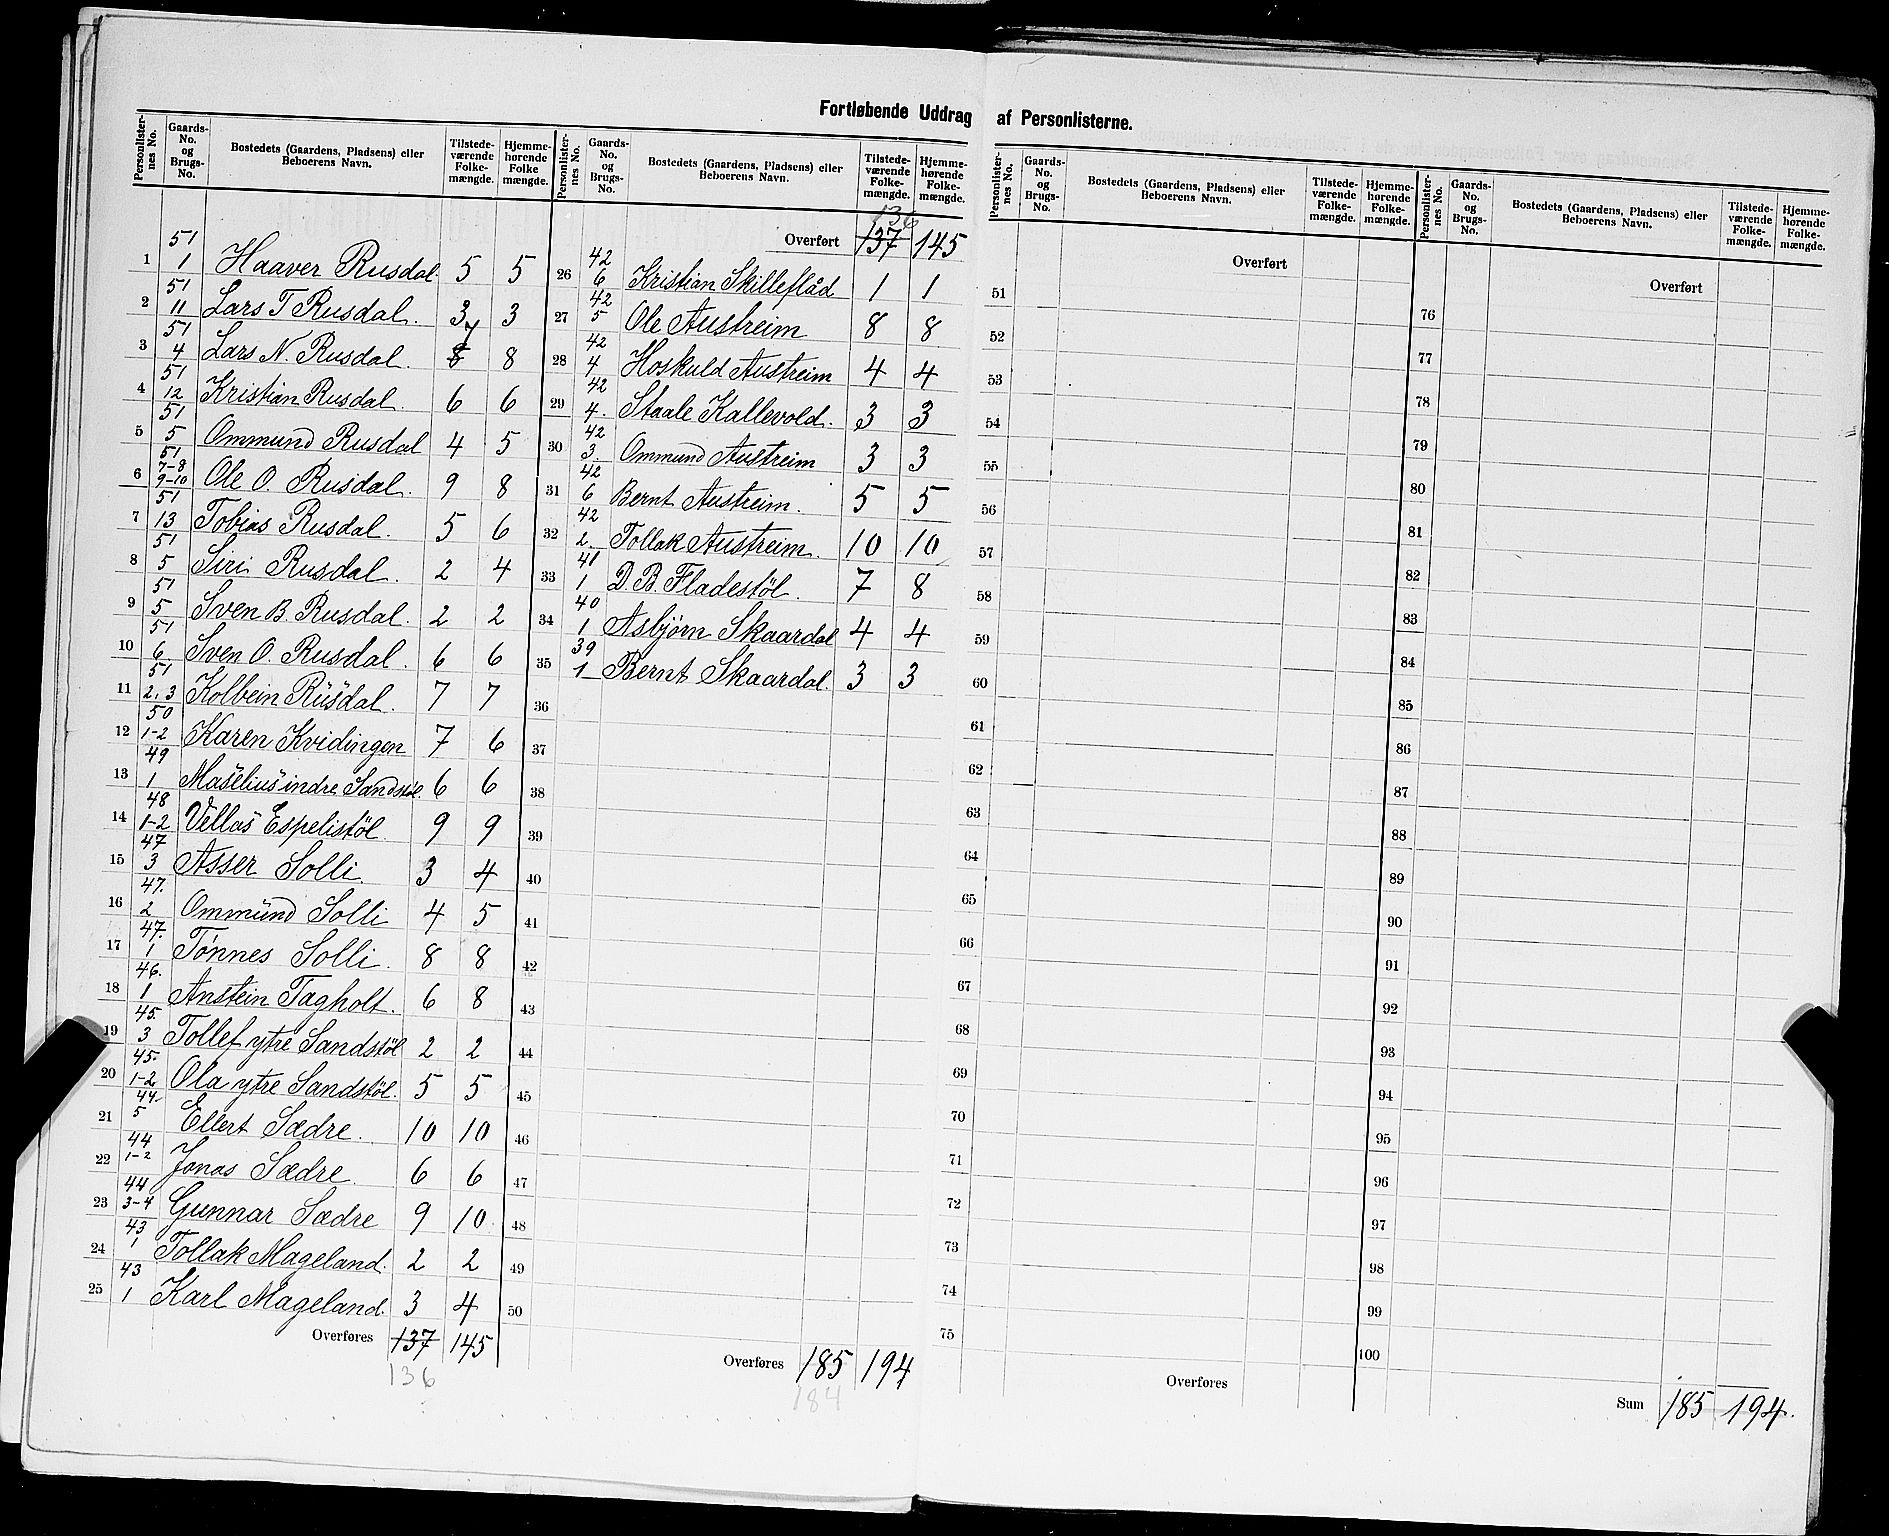 Fortløbende Uddrag af Personlisterne.
Personlister-nes No. | Gaards-No. og Brugs-No. | Bostedets (Gaardens, Pladsens) eller Beboerens Navn. | Tilstede-værende Folke-mængde. | Hjemme-hørende Folke mængde.
1 51 1 Haaver Rusdal 5 5
2 51 11 Lars T Rusdal. 3 3
3 51 4 Lars N. Rusdal. 8 7 8
4 51 12 Kristian Rusdal 6 6
5 51 5 Ommund Rusdal 4 5
6 51 7-8 9-10 Ole O. Rusdal. 9 8
7 51 13 Tobias Rusdal. 5 6
8 51 5 Siri Rusdal. 2 4
9 51 5 Sven B. Rusdal. 2 2
10 51 6 Sven O. Rusdal. 6 6
11 51 2,3 Kolbein Rusdal. 7 7
12 50 1-2 Karen Kvidingen 7 6
13 49 1 Maselius indre Sandstøl. 6 6
14 48 1-2 Vellas Espelistøl 9 9
15 47 3 Asser Solli. 3 4
16 47. 2 Ommund Solli 4 5
17 47. 1 Tønnes Solli. 8 8
18 46. 1 Anstein Tagholt. 6 8
19 45. 3 Tollef ytre Sandstøl 2 2
20 45. 1-2 Ola ytre Sandstøl. 5 5
21 44. 5 Ellert Sædre. 10 10
22 44 1-2 Jonas Sædre. 6 6
23 44 3-4 Gunnar Sædre 9 10
24 43 1 Tollak Mageland. 2 2
25 43 1 Karl Mageland. 3 4
Overføres 137 145
136
Personlister-nes No. | Gaards-No. og Brugs-No. | Bostedets (Gaardens, Pladsens) eller Beboerens Navn. | Tilstede-værende Folke-mængde. | Hjemme-hørende Folke-mængde.
136
Overført 137 145
26 42 6 Kristian Skilleflåd 1 1
27 42 5 Ole Austreim 8 8
28 42 4 Hoskuld Austreim 4 4
29 42 4. Staale Kallevold. 3 3
30 42 3. Ommund Austreim 3 3
31 42 6 Bernt Austreim. 5 5
32 42 2. Tollak Austreim. 10 10
33 41 1 D. B. Fladestøl. 7 8
34 40 1 Asbjørn Skaardal 4 4
35 39 1 Bernt Skaardal. 3 3
36
37
38
39
40
41
42
43
44
45
46
47
48
49
50
Overføres 185 194
184
Personlister-nes No. | Gaards-No. og Brugs-No. | Bostedets (Gaardens, Pladsens) eller Beboerens Navn. | Tilstede-værende Folke-mængde. | Hjemme-hørende Folke-mængde.
Overført
51
52
53
54
55
56
57
58
59
60
61
62
63
64
65
66
67
68
69
70
71
72
73
74
75
Overføres
Personlister-nes No. | Gaards-No. og Brugs-No. | Bostedets (Gaardens, Pladsens) eller Beboerens Navn. | Tilstede-værende Folke-mængde. | Hjemme-hørende Folke-mængde.
Overført
76
77
78
79
80
81
82
83
84
85
86
87
88
89
90
91
92
93
94
95
96
97
98
99
100
Sum 185 194.